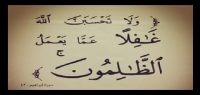 ﴿ وَلَا تَحْسَبَنَّ ٱللَّهَ
غَٰفِلًا عَمَّا يَعْمَلُ
ٱلظَّٰلِمُونَ ۚ ﴾
سورة ابراهيم - ٤٢